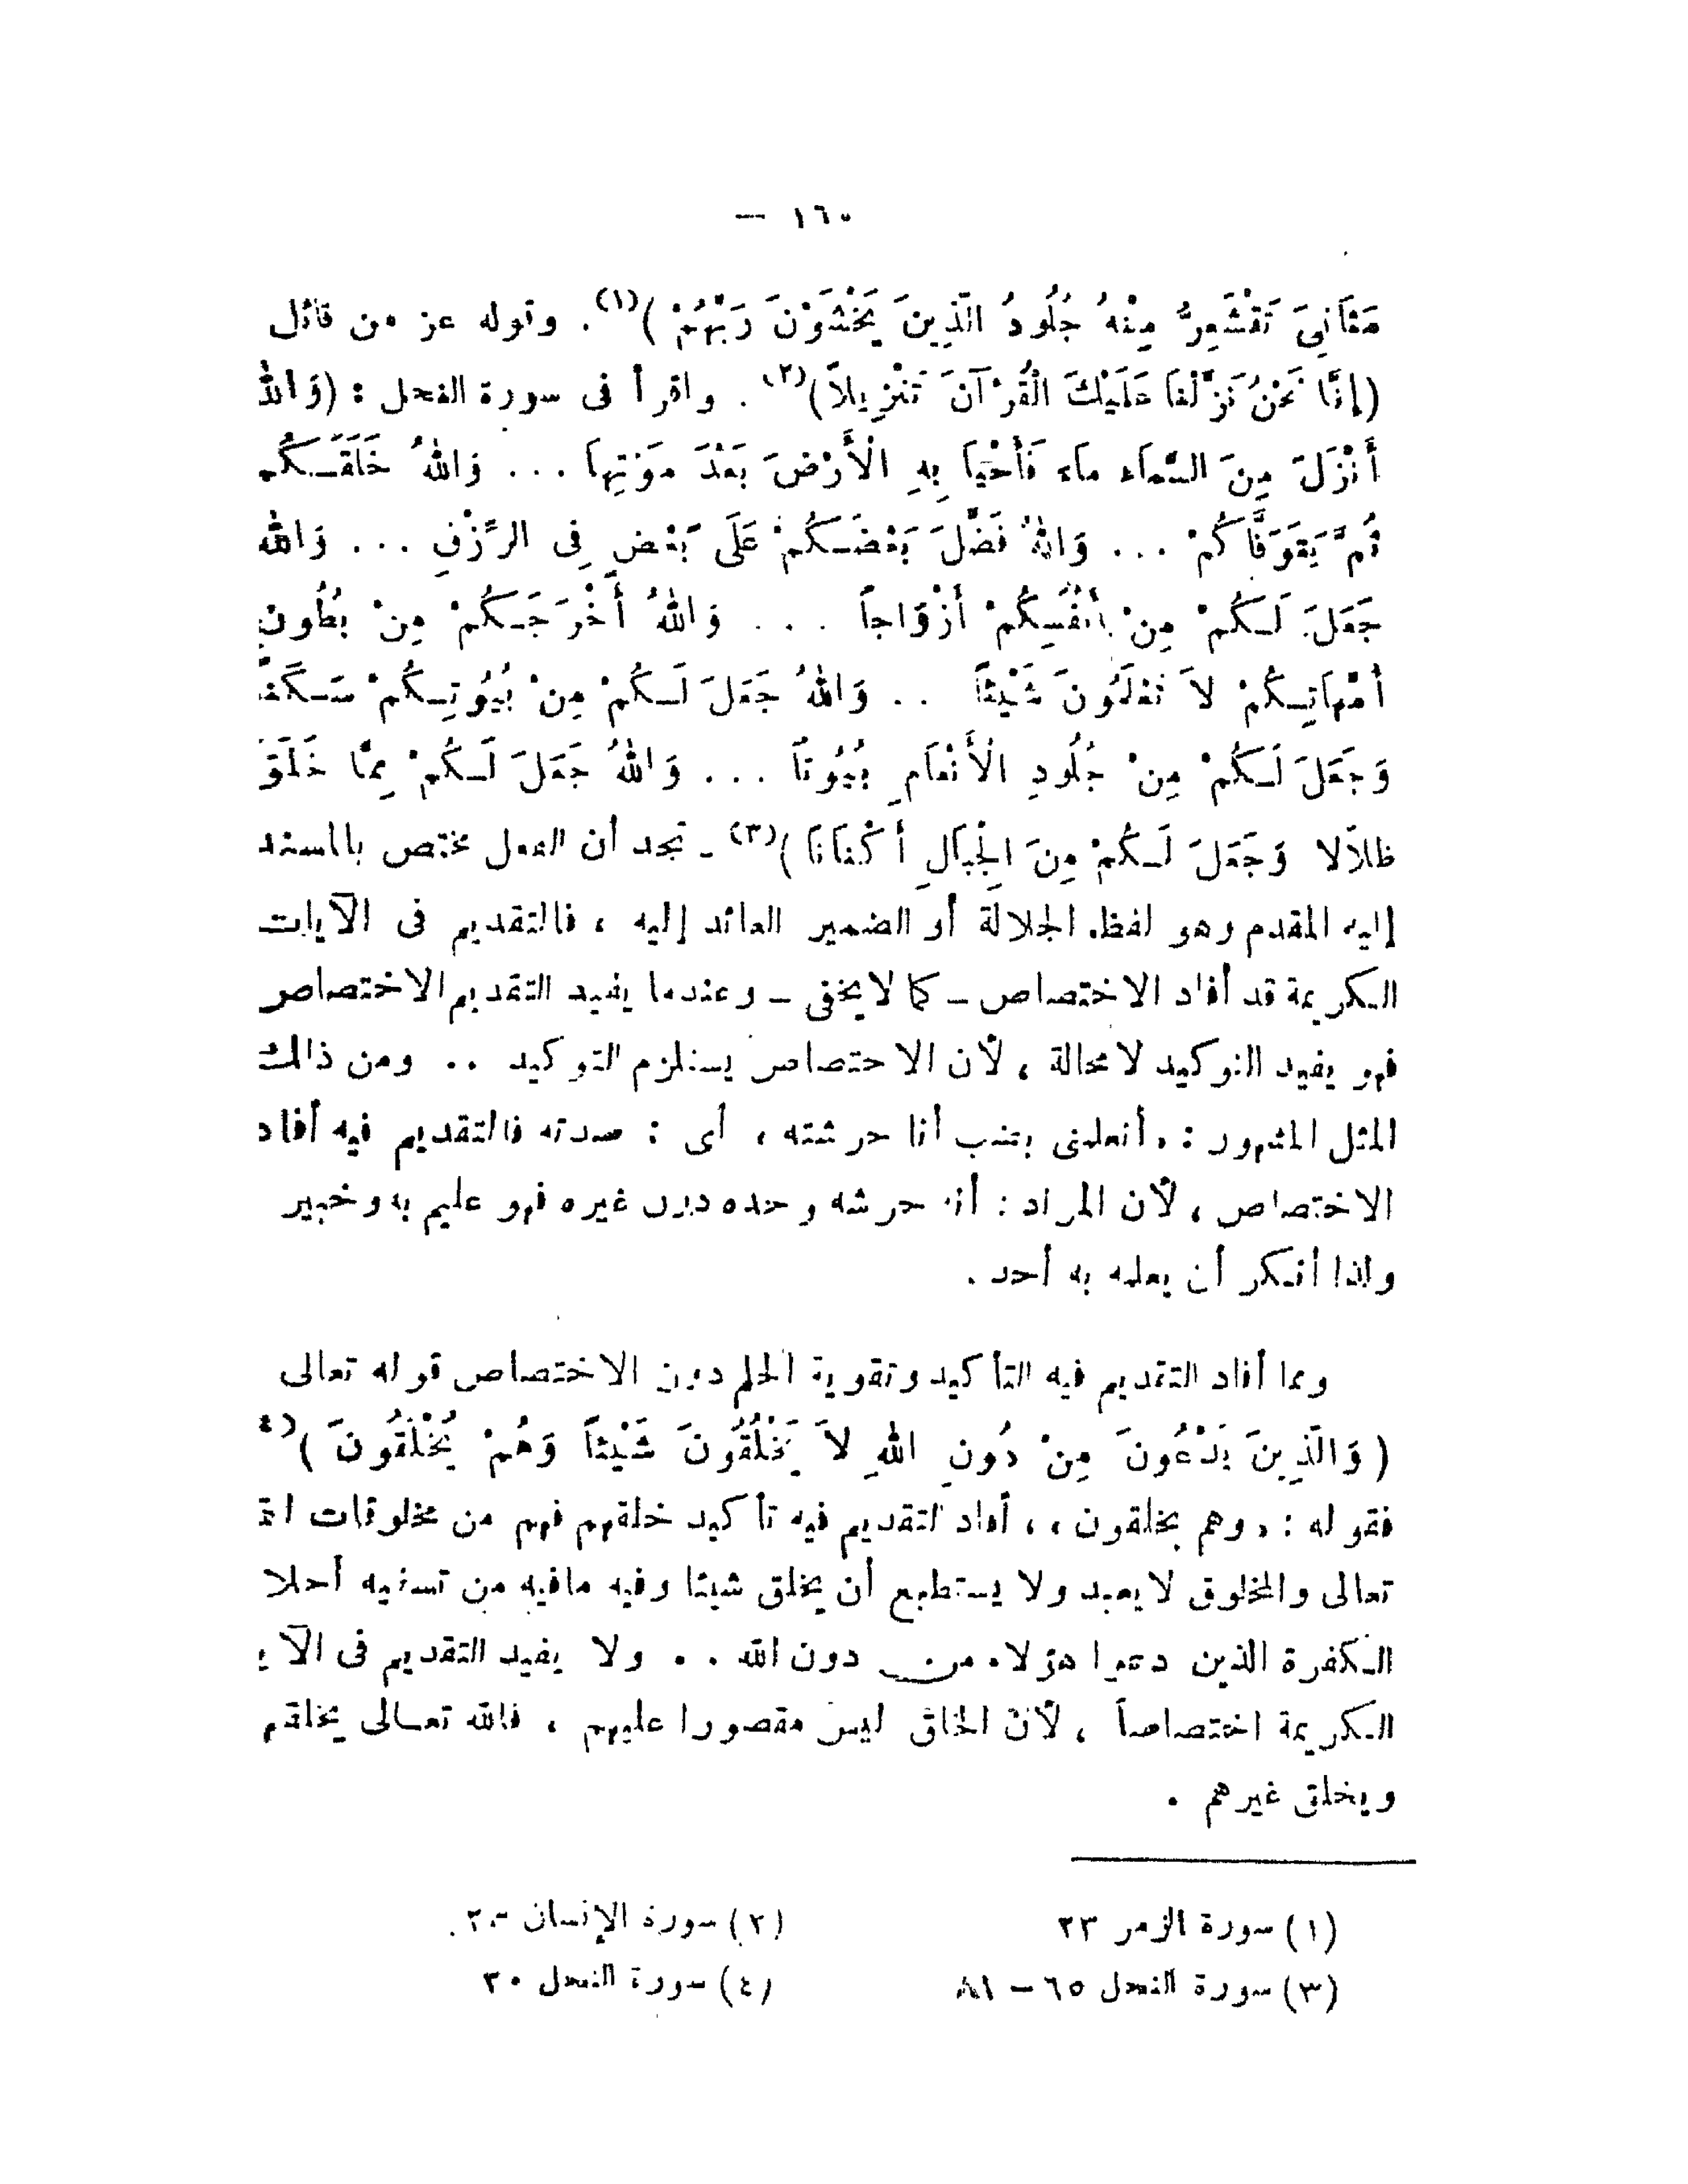 ١٦٠ —
مَثَانِىَ تَقْشَعِرُّ مِنْهُ جُلُودُ الَّذِينَ يَخْشَوْنَ رَبَّهُمْ)(١). وقوله عز من قائل
(إِنَّا نَحْنُ نَزَّلْنَا عَلَيْكَ الْقُرْآنَ تَنْزِيلاً)(٢). واقرأ فى سورة النحل : (وَاللهُ
أَنْزَلَ مِنَ السَّمَاءِ مَاءً فَأَحْيَا بِهِ الْأَرْضَ بَعْدَ مَوْتِهَا ... وَاللهُ خَلَقَكُم
ثُمَّ يَتَوَفَّاكُمْ ... وَاللهُ فَضَّلَ بَعْضَكُمْ عَلَى بَعْضٍ فِى الرِّزْقِ ... وَاللهُ
جَعَلَ لَكُمْ مِنْ أَنْفُسِكُمْ أَزْوَاجاً ... وَاللهُ أَخْرَجَكُمْ مِنْ بُطُونِ
أُمَّهَاتِكُمْ لاَ تَعْلَمُونَ شَيْئاً .. وَاللهُ جَعَلَ لَكُمْ مِنْ بُيُوتِكُمْ سَكَناً
وَجَعَلَ لَكُمْ مِنْ جُلُودِ الْأَنْعَامِ بُيُوتاً ... وَاللهُ جَعَلَ لَكُمْ مِمَّا خَلَقَ
ظِلاَلا وَجَعَلَ لَكُمْ مِنَ الْجِبَالِ أَكْنَانَا)(٣) ـ تجد أن الفعل مختص بالمسند
إليه المقدم وهو لفظ الجلالة أو الضمير العائد إليه ، فالتقديم فى الآيات
الكريمة قد أفاد الاختصاص ـ كما لا يخفى ـ وعندما يفيد التقديم الاختصاص
فهو يفيد التوكيد لا محالة ، لأن الاختصاص يستلزم التوكيد .. ومن ذلك
المثل المشهور : «أتعلمنى بضب أنا حرشته ، أى : صدته فالتقديم فيه أفاد
الاختصاص ، لأن المراد : أنه حرشه وحده دون غيره فهو عليم به وخبير
ولذا أنكر أن يعلمه به أحد .
ومما أفاد التقديم فيه التأكيد وتقوية الحكم دون الاختصاص قوله تعالى
(وَالَّذِينَ يَدْعُونَ مِنْ دُونِ اللهِ لاَ يَخْلُقُونَ شَيْئاً وَهُمْ يُخْلَقُونَ)(٤
فقوله : «وهم يخلقون» ، أفاد التقديم فيه تأكيد خلقهم فهم من مخلوقات الله
تعالى والمخلوق لا يعبد ولا يستطيع أن يخلق شيئا وفيه ما فيه من تسفيه أحلا
الكفرة الذين دعوا هؤلاء من دون الله .. ولا يفيد التقديم فى الآي
الكريمة اختصاصاً ، لأن الخلق ليس مقصورا عليهم ، فالله تعالى يخلقهم
ويخلق غيرهم .
(١) سورة الزمر ٢٣
(٢) سورة الإنسان ٢٣.
(٣) سورة النحل ٦٥ – ٨١
(٤) سورة النحل ٢٠